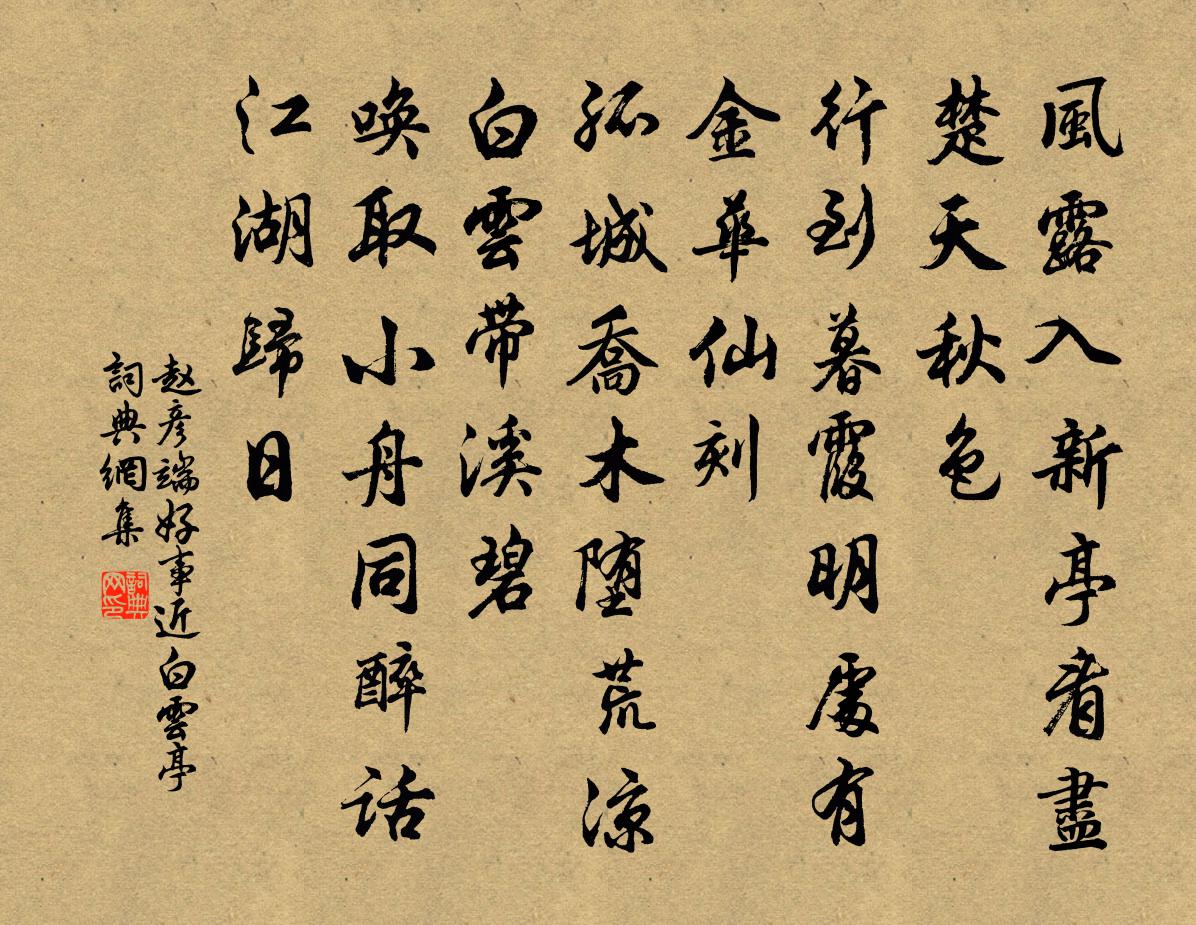 風露入新亭看盡
楚天秋色
行到暮霞明處有
金華仙刻
孤城喬木墮荒涼
白雲帶溪碧
喚取小舟同醉話
江湖歸日
赵彦端好事近白雲亭
詞典網集
詞典网印